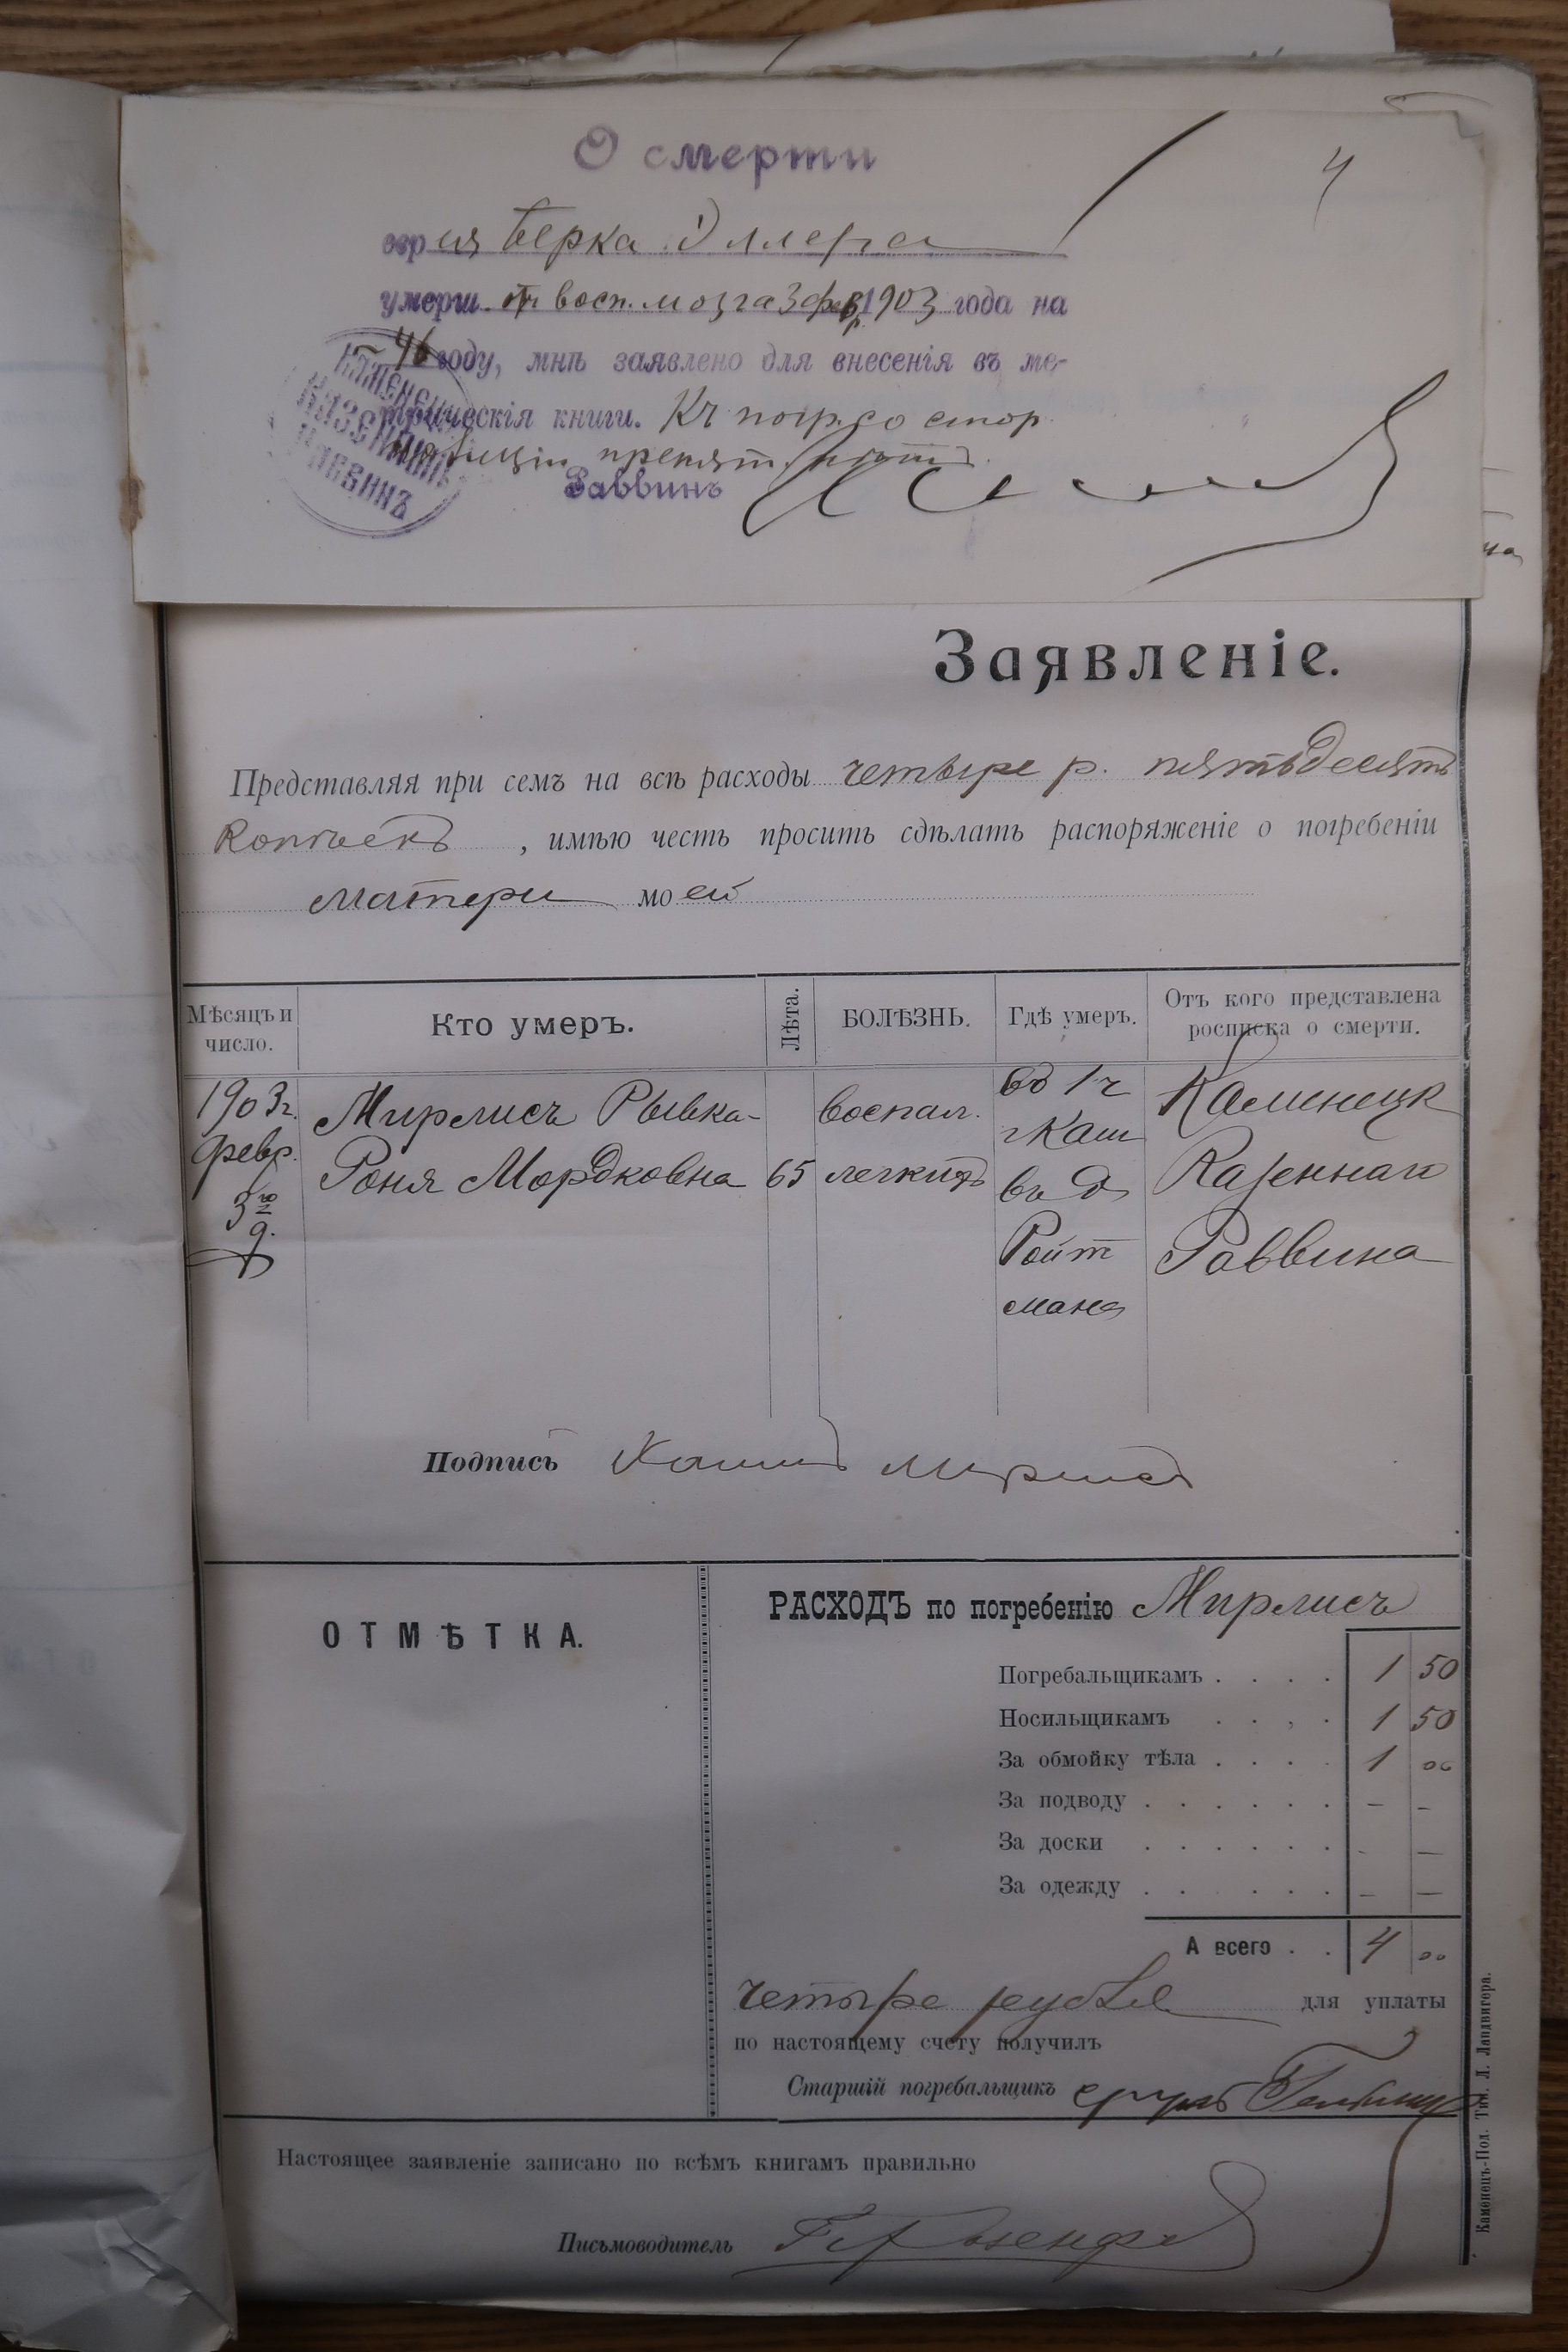 О смерти
4
евр ія Берка Эллера
умерш. от восп. мозга 3 февр. 1903 года на
46 году, мнѣ заявлено для внесенія въ ме-
трическія книги. Къ погр. со стор.
препят.
КАМЕНЕЦКІЙ КАЗЕННЫЙ РАВВИНЪ
Раввинъ
Заявленіе.
Представляя при семъ на всѣ расходы четыре р. пятьдесятъ
копѣекъ , имѣю честь просить сдѣлать распоряженіе о погребеніи
матери моей
Мѣсяцъ и число. Кто умеръ. Лѣта. БОЛѢЗНЬ. Гдѣ умеръ. Отъ кого представлена росписка о смерти.
1903 г. Мирлисъ Рывка- воспал. Каменецк
февр. Роня Мордковна 65 легкихъ въ д Казеннаго
3го Ройт Раввина
д. мана
Подпись
ОТМѢТКА.
РАСХОДЪ по погребенію Мирлисъ
Погребальщикамъ . . . . 1 50
Носильщикамъ . . . . 1 50
За обмойку тѣла . . . . 1 00
За подводу . . . . . . – –
За доски . . . . . . - —
За одежду . . . . . . – —
А всего . . 4 00
четыре рубля для уплаты
по настоящему счету получилъ
Старшій погребальщикъ
Настоящее заявленіе записано по всѣмъ книгамъ правильно
Письмоводитель
Каменецъ-Под. Тип. Л. Ландвигера.